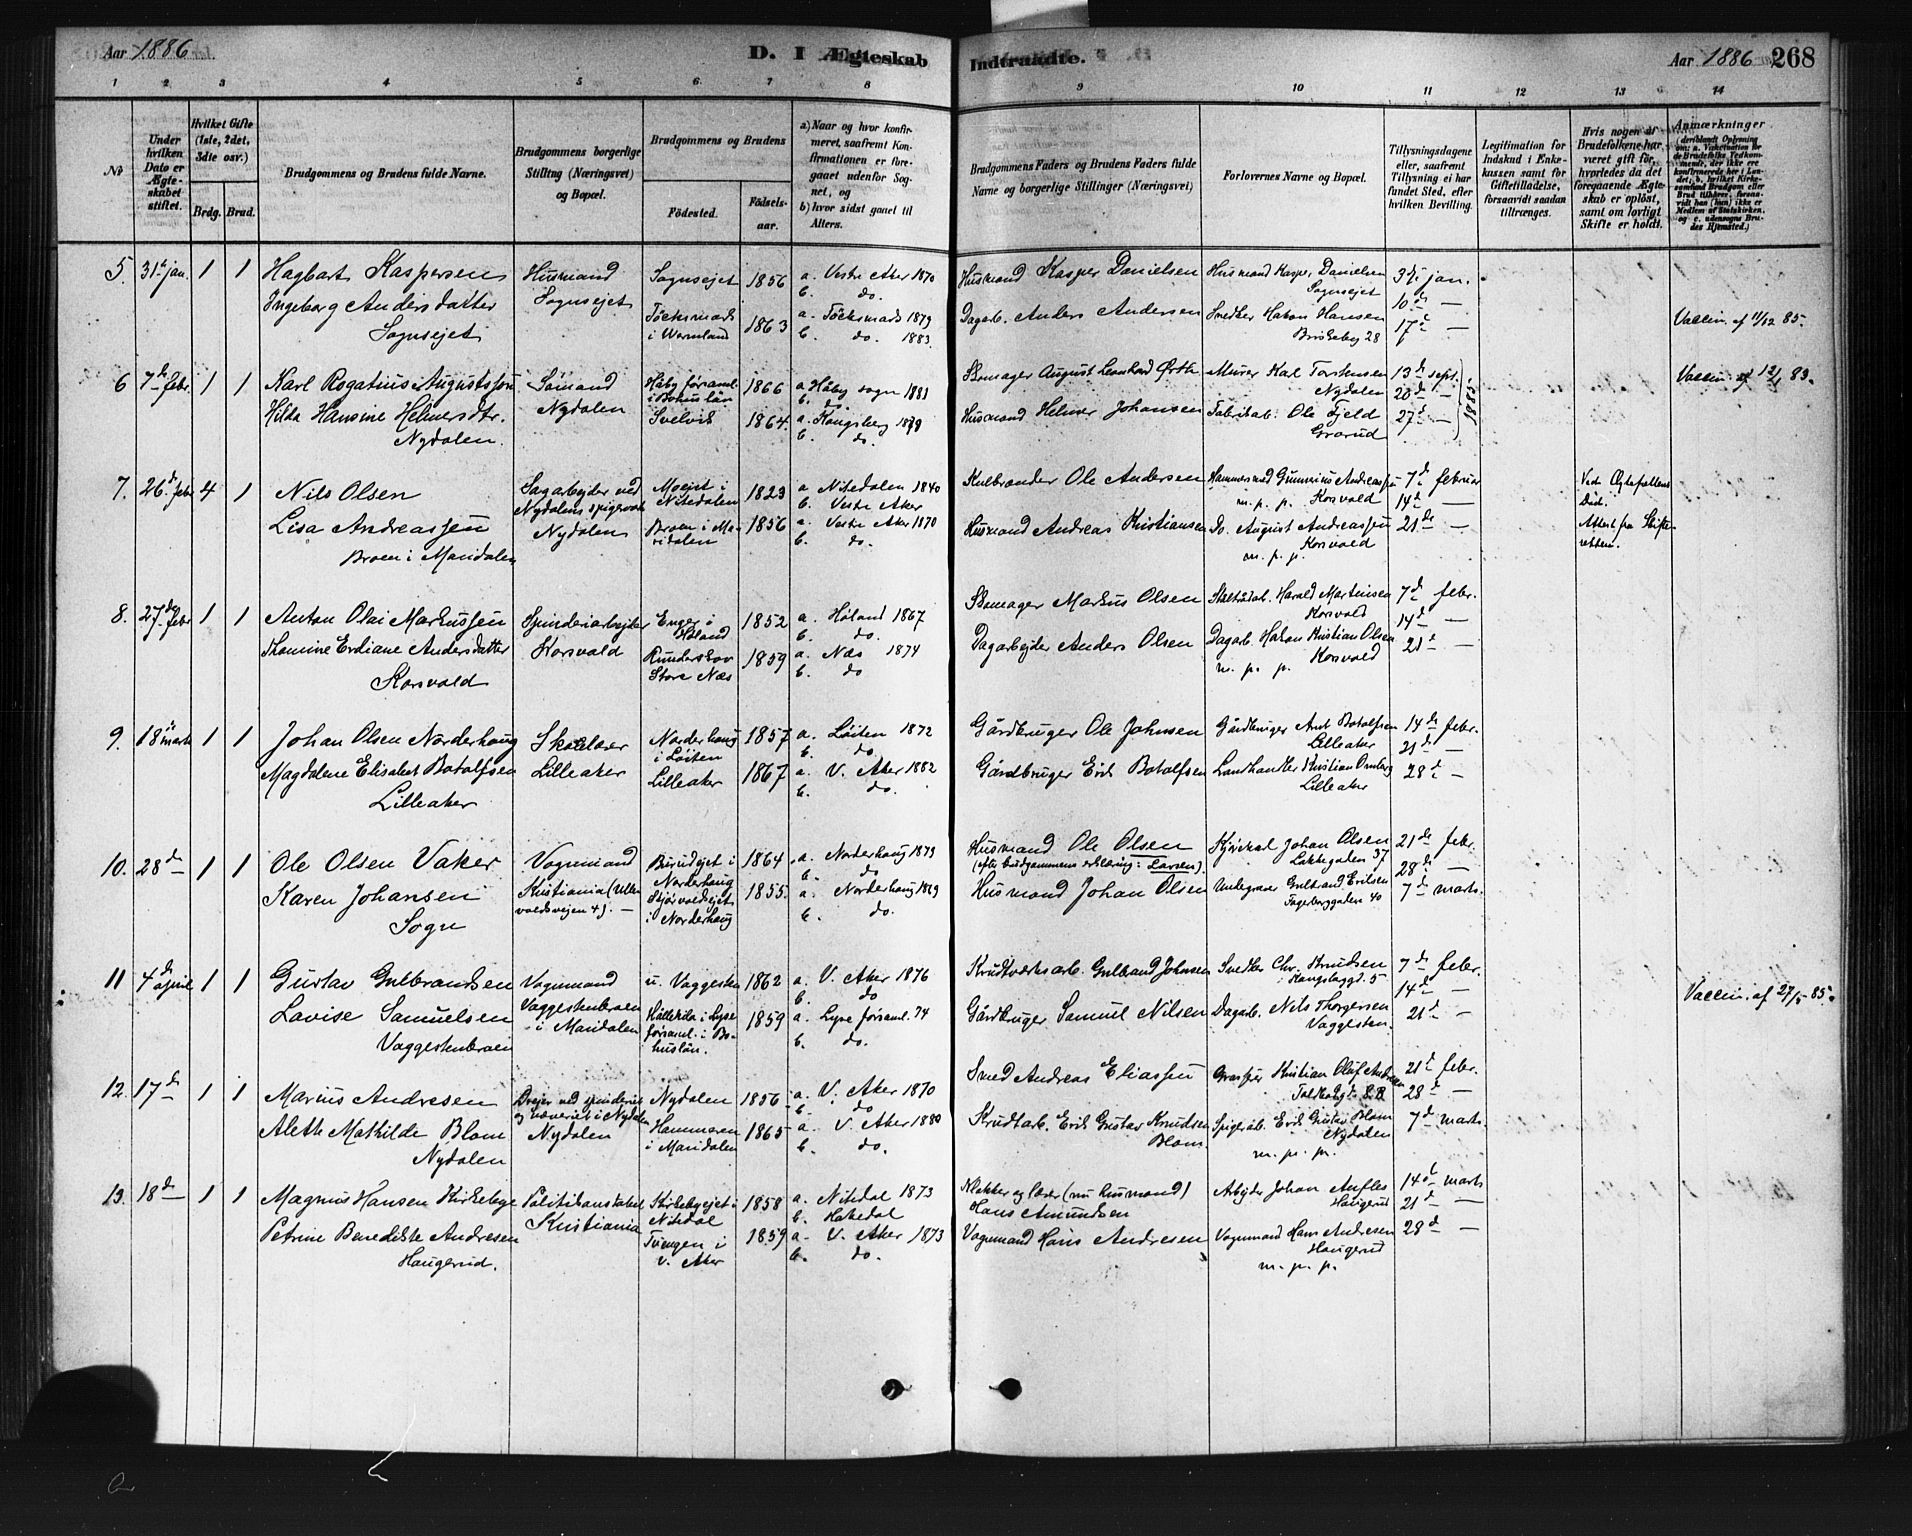 Aar 1886
D. I Ægteskab Indtraadte.
Aar 1886 268
1 2 3 4 5 6 7 8 9 10 11 12 13 14
No
Under hvilken Dato er Ægteskabet stiftet.
Hvilket Gifte (1ste, 2det, 3die osv.)
Brdg. Brud.
Brudgommens og Brudens fulde Navne.
Brudgommens borgerlige Stilling (Næringsvei) og Bopæl.
Brudgommens og Brudens
Födested.
Födselsaar.
a) Naar og hvor konfirmeret, saafremt Konfirmationen er foregaaet udenfor Sognet, og
b) hvor sidst gaaet til Alters.
Brudgommens Faders og Brudens Faders fulde Navne og borgerlige Stillinger (Næringsvei)
Forlovernes Navne og Bopæl.
Tillysningsdagene eller, saafremt Tillysning ei har fundet Sted, efter hvilken Bevilling.
Legitimation for Indskud i Enkekassen samt for Giftetilladelse, forsaavidt saadan tiltrænges.
Hvis nogen af Brudefolkene har været gift før, hvorledes da det foregaaende Ægteskab er oplöst, samt om lovligt Skifte er holdt.
Anmærkninger
5. 31te jan. 1 1
Hagbart Kaspersen
Ingeborg Andersdatter
Sognsejet
Husmand
Sognsejet
Sognsejet 1856
Töcksmark
i Wermland 1863
a. Vestre Aker 1870
b. do.
a. Töcksmark 1879
b. do. 1883.
Husmand Kasper Danielsen
Dagarb. Anders Andersen
Husmand Kasper Danielsen
Sognsejet
Snedker Hakon Hansen
Birkeby 28
3de jan.
10de —
17de —
Vaccin. af 11/12 85.
6 7de febr. 1 1
Karl Rogatius Augustsson
Hilda Hansine Helmersdtr.
Nydalen.
Sömand
Nydalen
Håby församl.
i Bohuslän 1866
Svelvik 1864.
a. Håby sogn 1881
b. do.
a. Kongsberg 1879
b. do.
Skomager August Leonhard Örth
Husmand Helmer Johansen
Murer Karl Torstensen
Nydalen
Fabrikarb. Ole Fjeld
Grorud
13de sept.
20de —
27de —
1885.
Vaccin. af 12/1 83.
7. 26de febr. 4 1
Nils Olsen
Lisa Andreassen
Broen i Maridalen
Sagarbejder ved
Nydalens spigerv.
Nydalen
Moeist i
Nitedalen 1823
Broen i Maridalen 1856
a Nitedalen 1840
b. Vestre Aker
a. Vestre Aker 1870
b. do.
Kulbrænder Ole Andersen
Husmand Andreas Kristiansen
Hammersmed Gunnerius Andreassen
m. p. p. Korsvold
Do. August Andreassen
m. p. p. Korsvold
7de februar
14de —
21de —
Ved Ægtefællens
Död.
Attest fra Skifteretten.
8. 27de febr 1 1
Anton Olai Markussen
Thomine Erdiane Andersdatter
Korsvold
Spinderiarbejder
Korsvold
Enger i
Höland 1852
Runderskov
Store Næs 1859
a. Höland 1867
b. do.
a. Næs 1874
b. do
Skomager Markus Olsen
Dagarbejder Anders Olsen
Harald Martinsen
Korsvold
Dagarb. Hakon Kristian Olsen
m. p. p. Korsvold
7de febr.
14de —
21de —
9. 18de marts 1 1
Johan Olsen Norderhoug
Magdalene Elisabet Botolfsen
Lilleaker
Skolelærer
Lilleaker
Norderhoug
i Löiten 1857
Lilleaker 1867
a. Löiten 1872
b. do
a. V. Aker 1882
b. do.
Gårdbruger Ole Johnsen
Gårdbruger Erik Botolfsen
Gårdbruger Ant Botolfsen
Lilleaker
Landhandler Kristian
Lilleaker
14de febr.
21de —
28de —
10. 28de 1 1
Ole Olsen Vaker
Karen Johansen
Sogn
Vognmand
Kristiania (Ullevoldsvejen 4). —
Burudejet i
Norderhoug 1864
i Norderhoug 1855.
a. Norderhoug 1879
b. do
a. Norderhoug 1869
b. do.
Husmand Ole Olsen
(efter brudgommens erklæring: Larsen)
Husmand Johan Olsen
Johan Olsen
Løkkegaden 37
Gulbrand Eriksen
Fagerborggaden 40
21de febr.
28de —
7de marts.
11 4de april 1 1
Gustav Gulbrandsen
Lovise Samuelsen
Vaggestenbroen
Vognmand
Vaggestenbroen
i Maridalen
u. Vaggesten 1862
Hällekila i Lyse
församl. i Bohuslän. 1859
a. V. Aker 1876
b. do
a. Lyse församl. 74
b. do.
Krudtværksarb. Gulbrand Johnsen
Gårdbruger Samuel Nilsen
Snedker Chr. Knudsen
5
Dagarb. Nils Thorgersen
Vaggesten.
7de febr.
14de —
21de —
Vaccin. af 27/5 85.
12. 17de 1 1
Marius Andresen
Aleth Mathilde Blom
Nydalen
Drejer ved spinderiet
og væveriet i Nydalen
Nydalen
Nydalen 1856
Hammeren
i Maridalen 1865
a. V. Aker 1870
b. do
a. V. Aker 1880
b. do.
Smed Andreas Eliassen
Krudtarb. Erik Gustav Knudsen
Blom
Kristian Olaf Andresen
Spigerarb. Erik Gustav Blom
Nydalen
m. p. p.
21de febr.
28de —
7de marts.
13. 18de 1 1
Magnus Hansen Kirkebye
Petrine Benedikte Andresen
Haugerud.
Politikonstabel
Kristiania
Kirkebyejet i
Nitedal 1858
Tvengen i
V. Aker 1859
a. Nitedal 1873
b. Hakedal
a. V. Aker 1873
b. do.
Klokker og lærer (nu husmand)
Hans Amundsen
Vognmand Hans Andresen
Arbejder Johan
Haugerud
Vognmand Hans Andresen
Haugerud
m. p. p.
14de marts
21de —
28de —